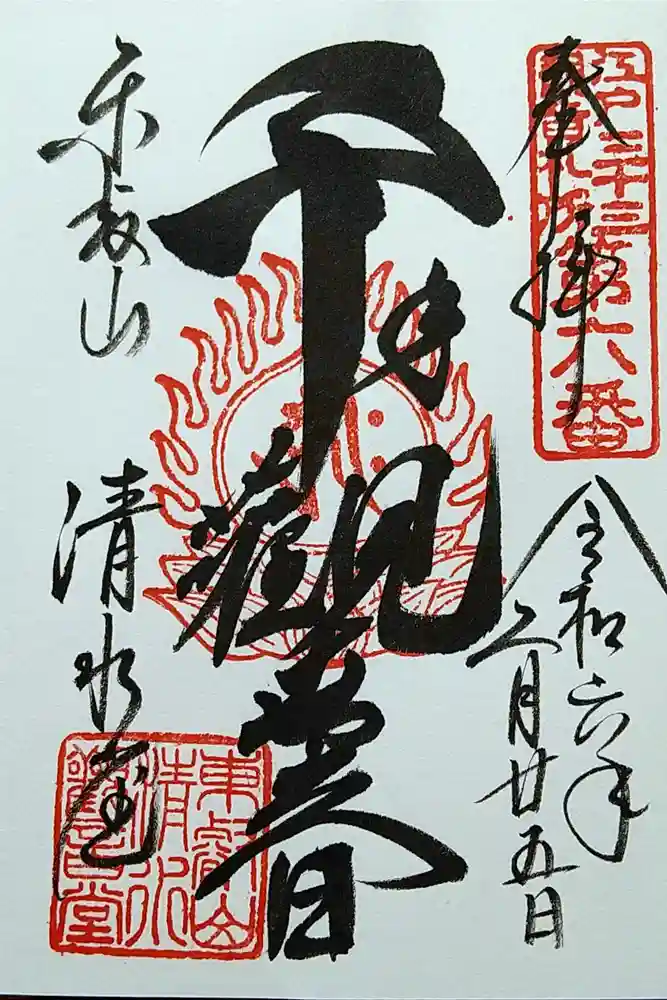 江戸三十三
観音札所第六番
奉拝
令和六年
二月廿五日
千手觀音
東叡山
清水堂
東叡山
清水
觀音堂